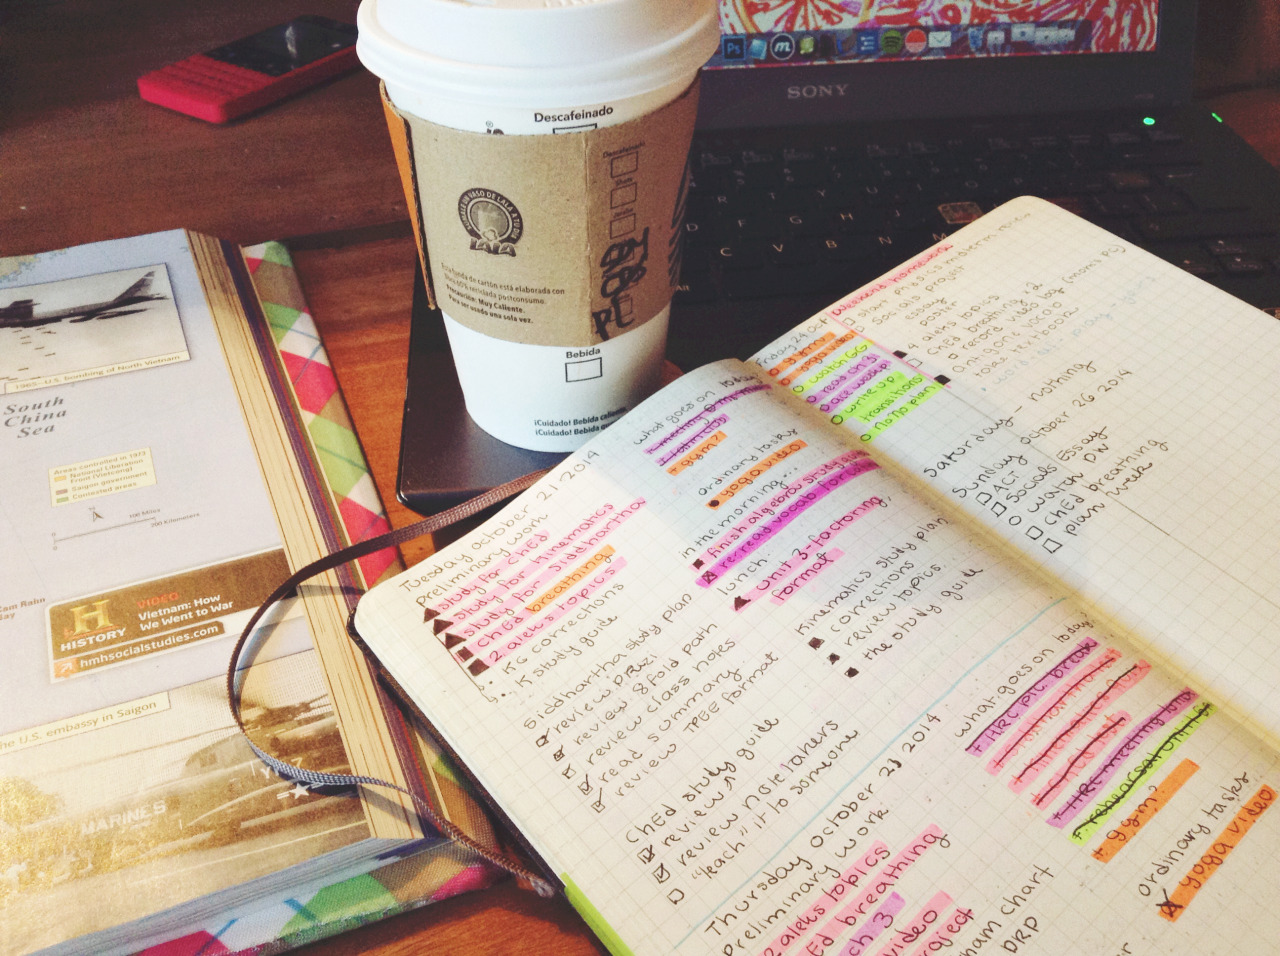 Descafeinado
Descafeinado
Shots
HAGÁMOSLE UN VASO DE LALA A TU DÍA
LALA
Esta funda de cartón está elaborada con
Precaución: Muy Caliente.
Para ser usado una sola vez.
Bebida
¡Cuidado! Bebida caliente
¡Cuidado! Bebida
SONY
Ps
m
R T Y U
D F G H J
C V B N M
Alt
1965—U.S. bombing of North Vietnam
South
China
Sea
Areas controlled in 1973
National Liberation
Front (Vietcong)
Saigon government
Contested areas
N
100 Miles
200 Kilometers
H
HISTORY
VIDEO
Vietnam: How
We Went to War
hmhsocialstudies.com
The U.S. embassy in Saigon
MARINES
Tuesday October 21 2014
preliminary work
study for ChEd
study for kinematics
study for siddhartha
ChEd breathing
2 aleks topics
KC corrections
K study guide
Siddhartha study plan
review prezi
review 8 fold path
review class notes
read summary
review TPEE format
ChEd study guide
review
review notetakers
"teach" it to someone
what goes on today
+ gym?
ordinary tasks
yoga video
in the morning...
finish algebra study
re-read vocab for
lunch
unit 3-factoring,
format
kinematics study plan
corrections
review topics
the study guide
Thursday October 23 2014
preliminary work
2 aleks topics
ChEd breathing
ch 3
video
project
what goes on today?
+ HRC pic. break
+ HRC meeting
+ rehearsal until
+ gym?
ordinary tasks
yoga video
ham chart
DRP
Friday 24 Oct
gym
yoga video
watch GG
read ch 3
write up
transitions
No No plan
weekend homework
start physics midterm review
Socials project
essay
poster
4 aleks topics
ChEd breathing x2
record video log (moms PC)
Antigone vocab
Saturday - nothing
Sunday October 26 2014
ACT
Socials Essay
watch DW
ChEd breathing
plan week